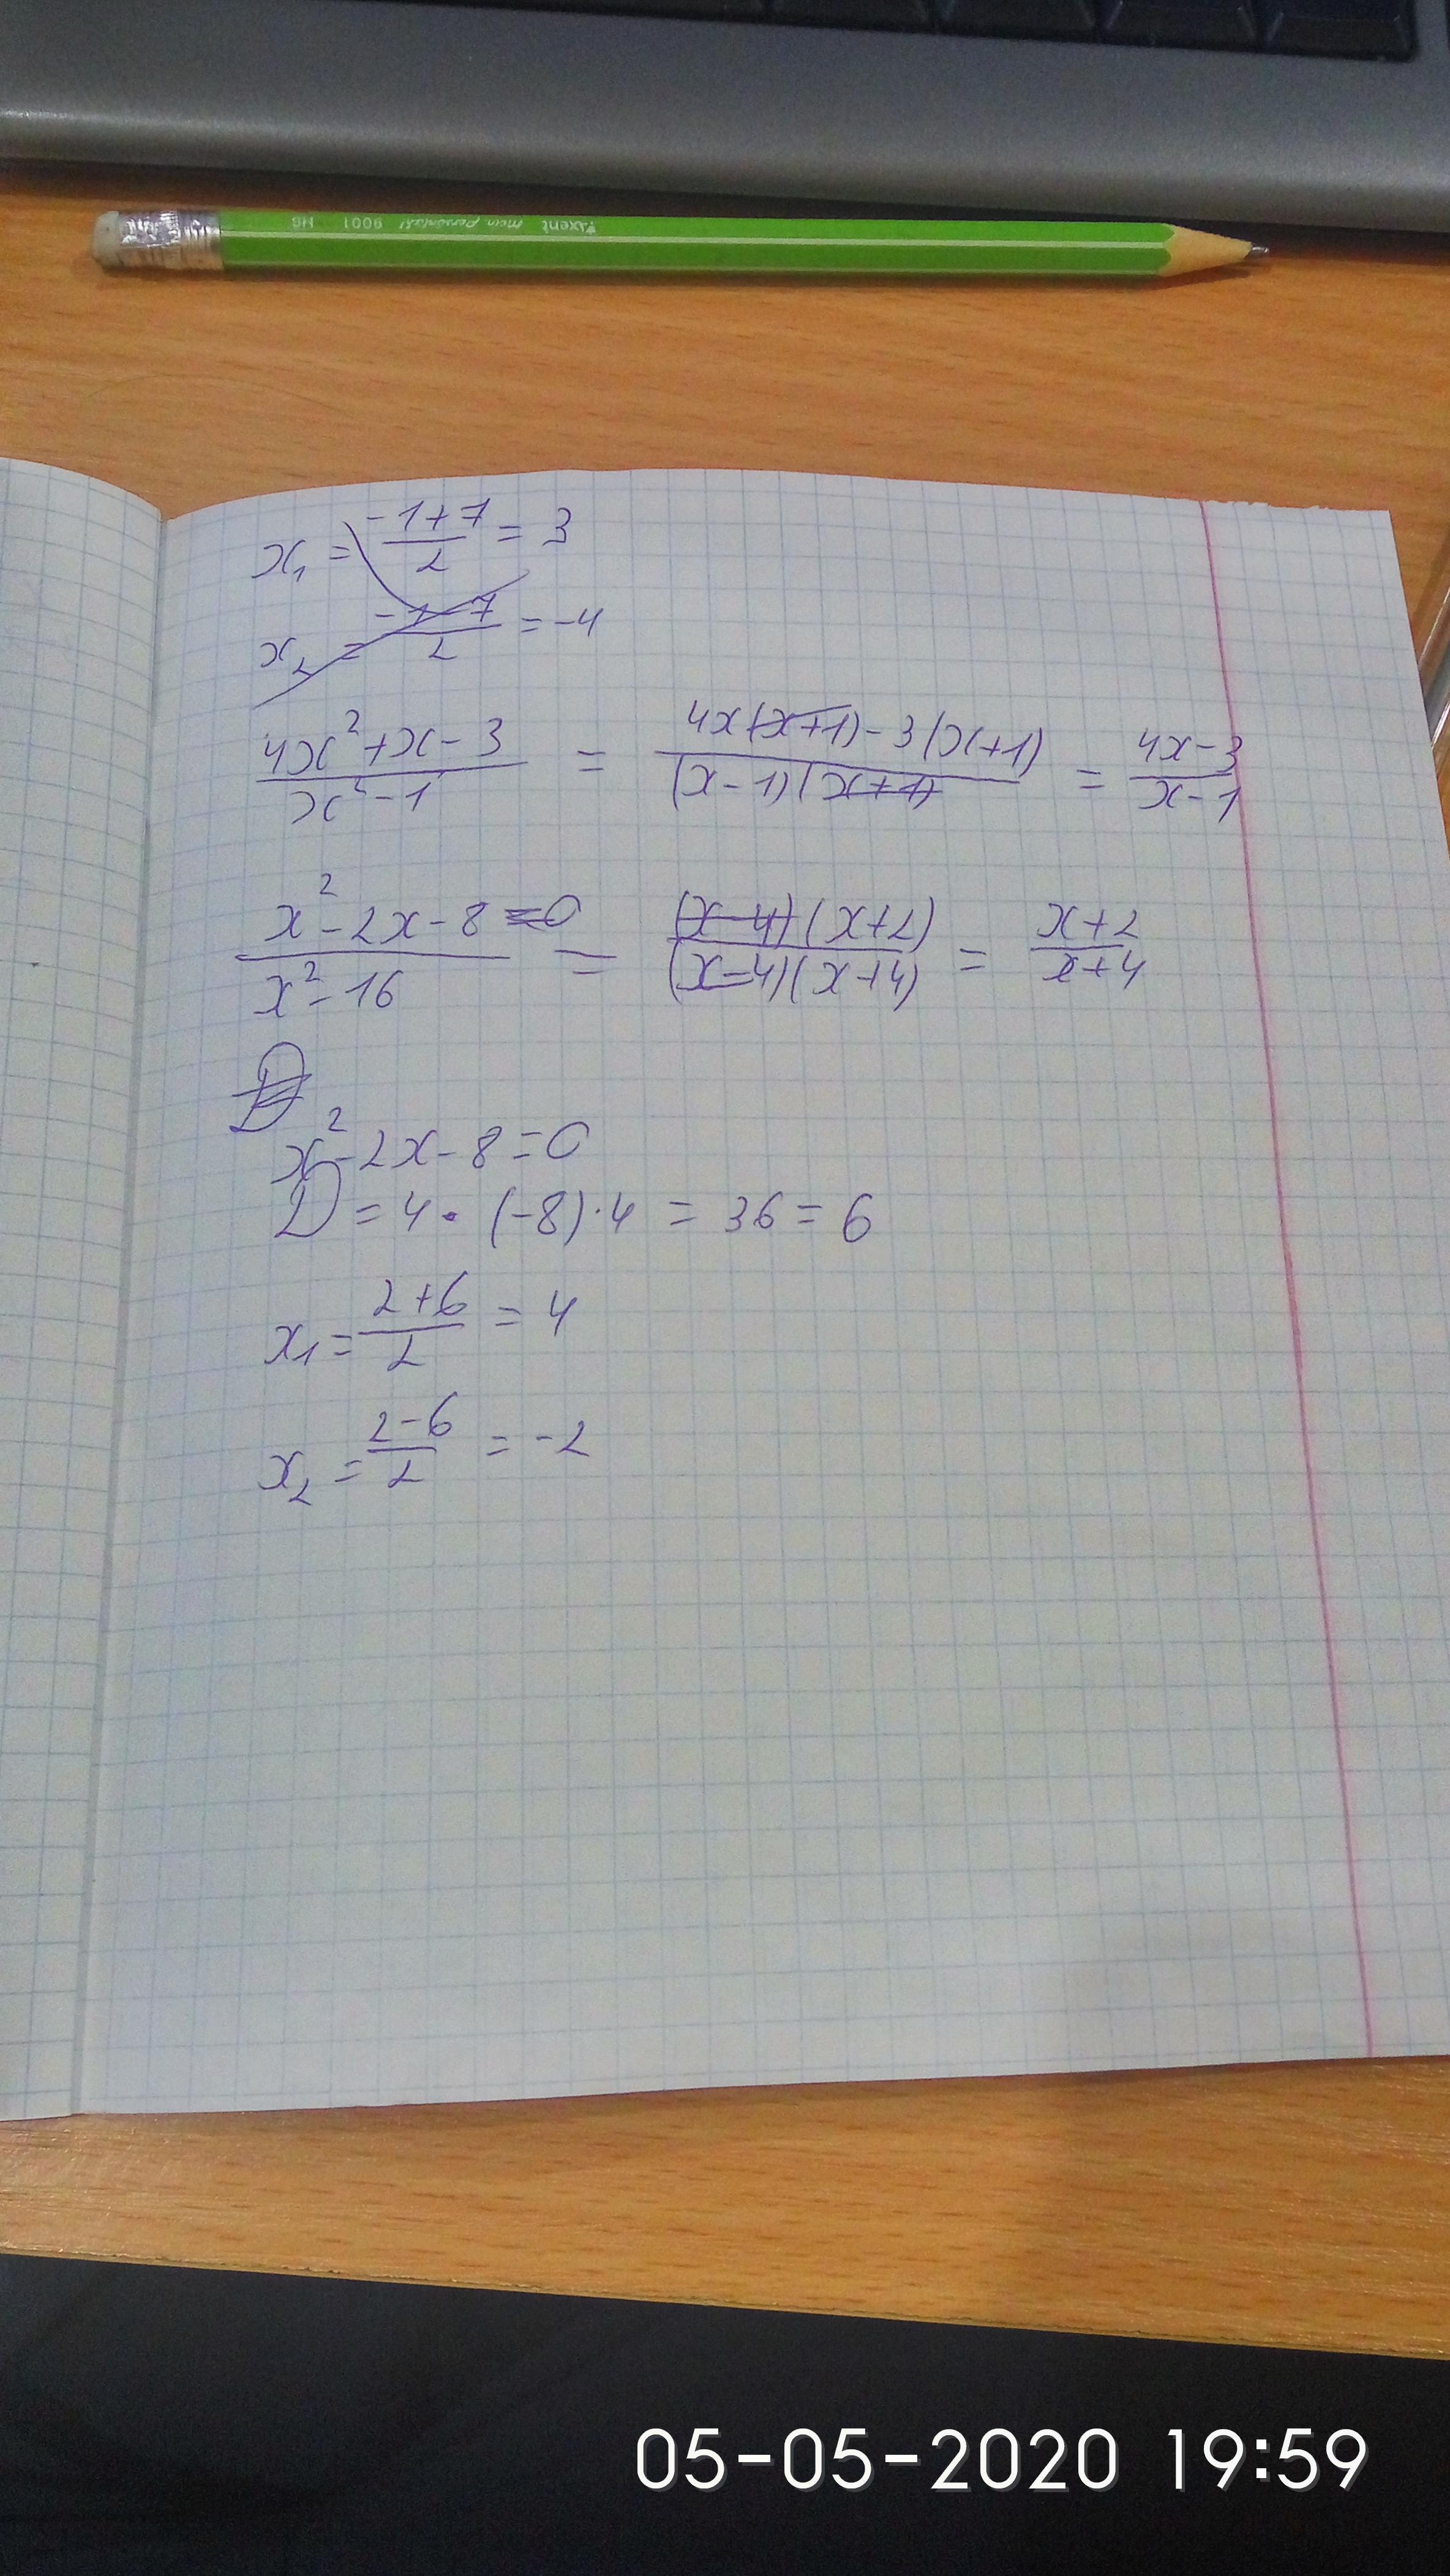 Axent mein personlich! 9001 HB
x₁ = (-1+7)/2 = 3
x₂ = (-1-7)/2 = -4
(4x²+x-3)/(x²-1) = (4x(x+1)-3(x+1))/((x-1)(x+1)) = (4x-3)/(x-1)
(x²-2x-8=0)/(x²-16) = ((x-4)(x+2))/((x-4)(x+4)) = (x+2)/(x+4)
D
x²-2x-8=0
D = 4 · (-8)·4 = 36 = 6
x₁ = (2+6)/2 = 4
x₂ = (2-6)/2 = -2
05-05-2020 19:59